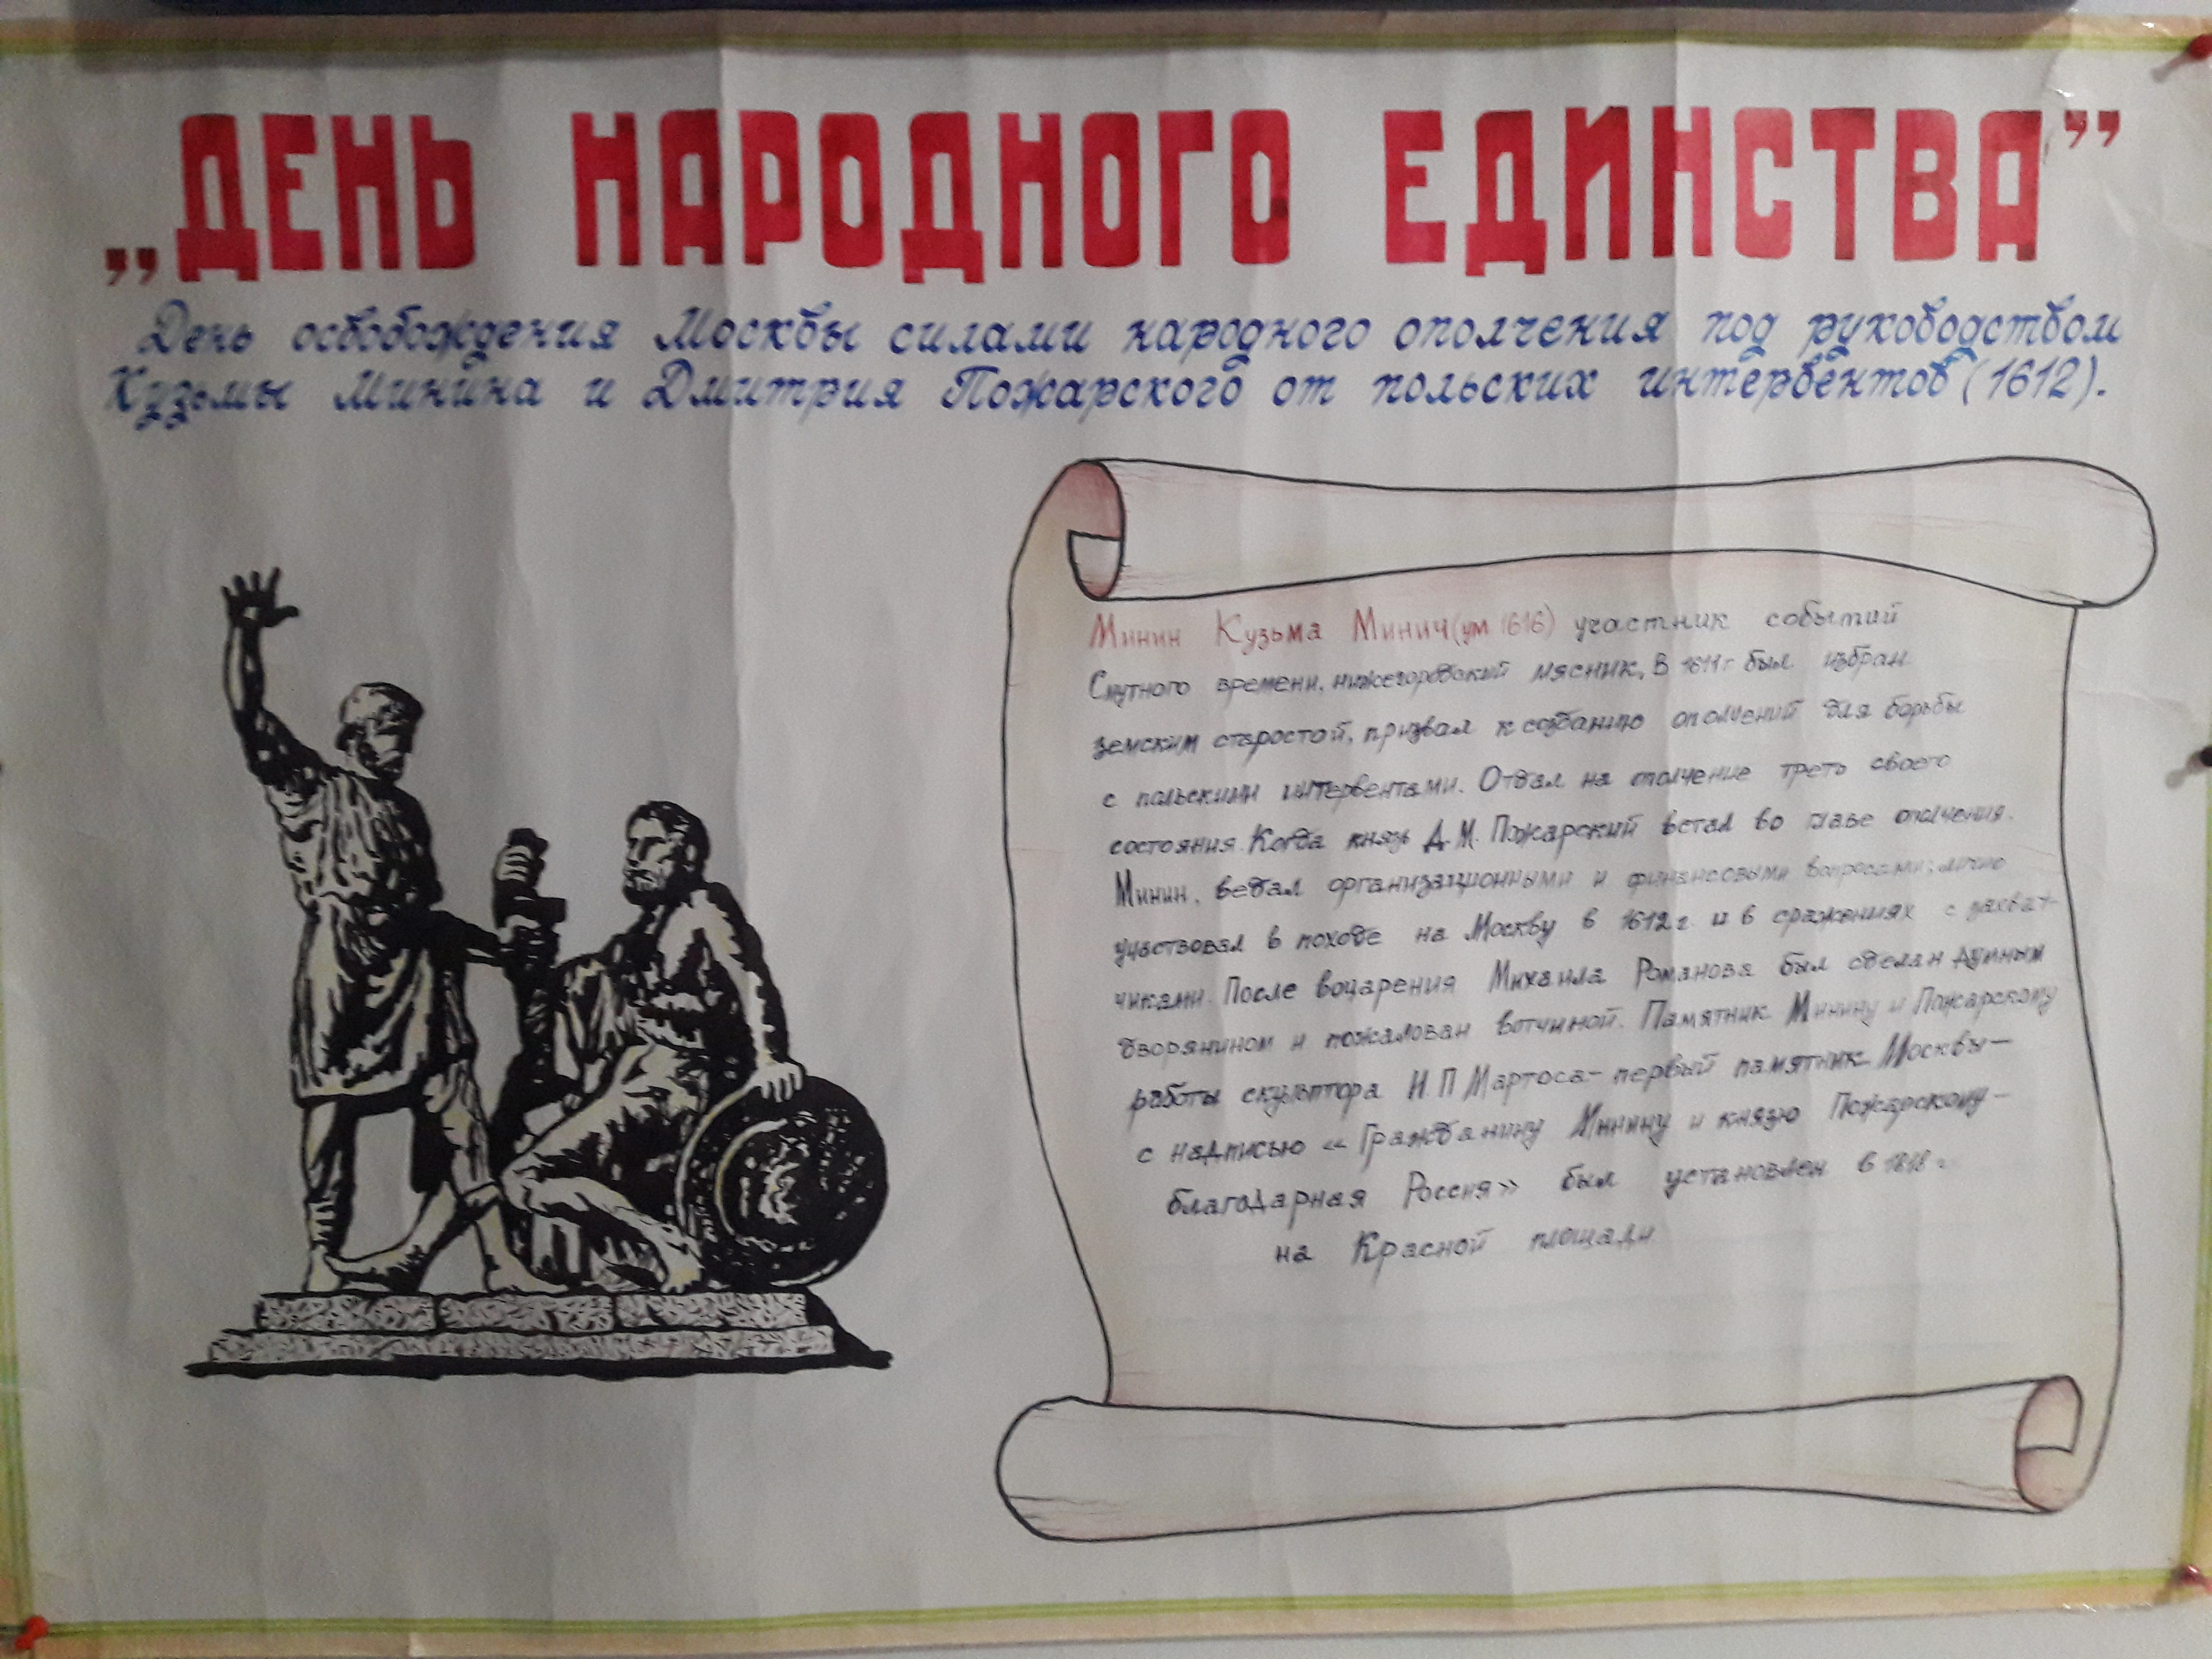 „ДЕНЬ НАРОДНОГО ЕДИНСТВА”
День освобождения Москвы силами народного ополчения под руководством
Кузьмы Минина и Дмитрия Пожарского от польских интервентов (1612).
Минин Кузьма Минич (ум 1616) участник событий
Смутного времени, нижегородский мясник, В 1611 г был избран
земским старостой, призвал к созданию ополчений для борьбы
с польскими интервентами. Отдал на ополчение треть своего
состояния. Когда князь Д. М. Пожарский встал во главе ополчения.
Минин, ведал организационными и финансовыми вопросами; лично
участвовал в походе на Москву в 1612 г. и в сражениях с захват-
чиками. После воцарения Михаила Романова был сделан думным
дворянином и пожалован вотчиной. Памятник Минину и Пожарскому
работы скульптора И. П Мартоса - первый памятник Москвы -
с надписью «Гражданину Минину и князю Пожарскому -
благодарная Россия» был установлен в 1818 г
на Красной площади